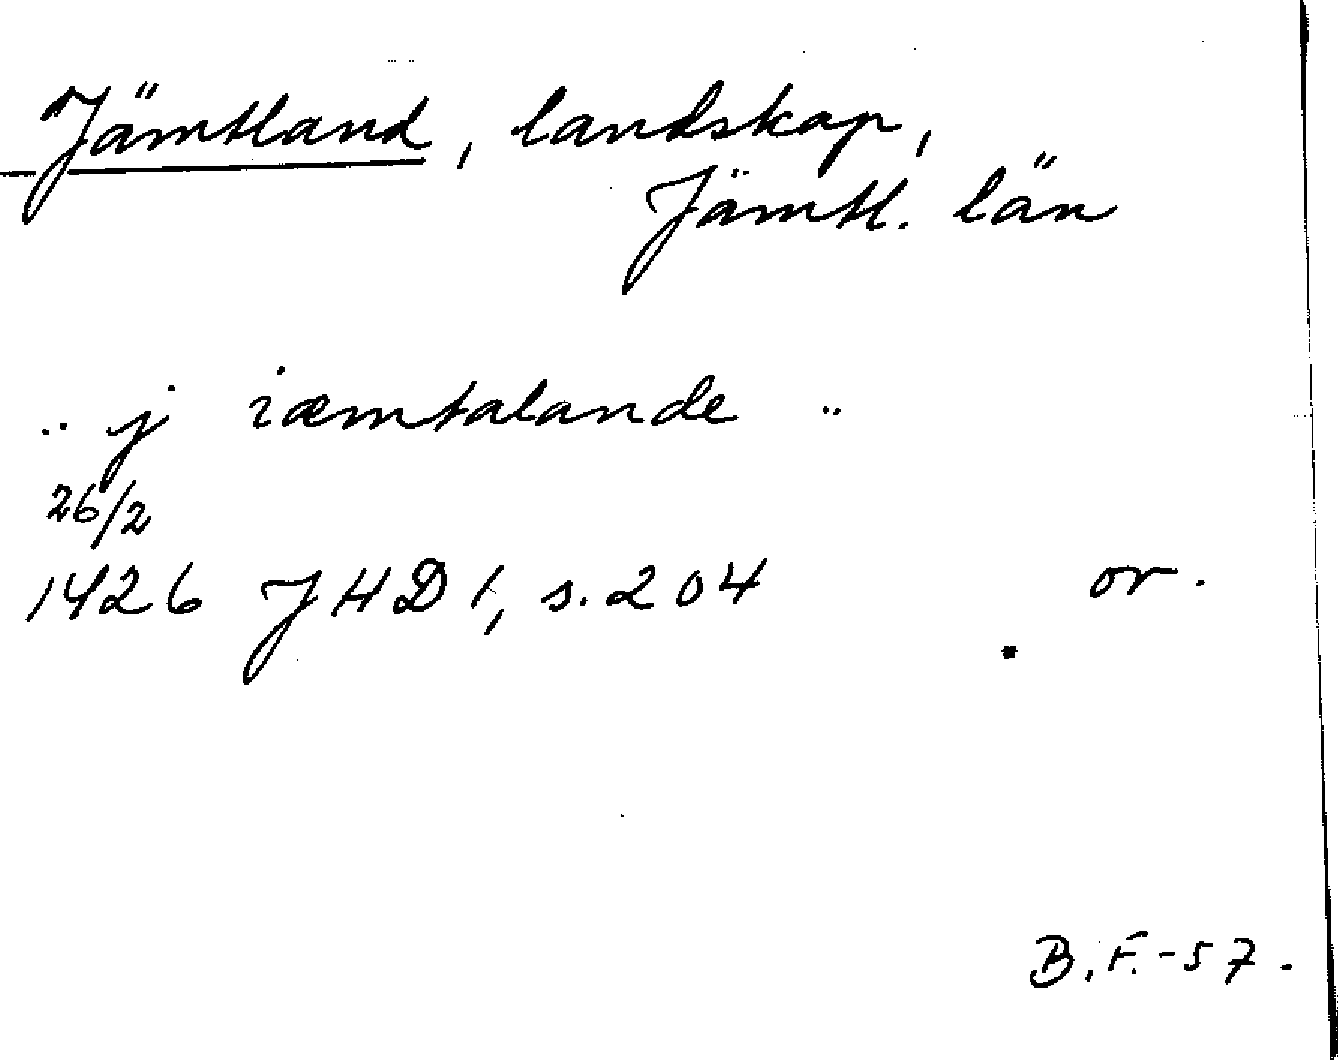 Jämtland, landskap,
Jämtl. län
.. j iæmtalande ..
26/2
1426 JHD 1, s. 204 or.
B.F.-57.